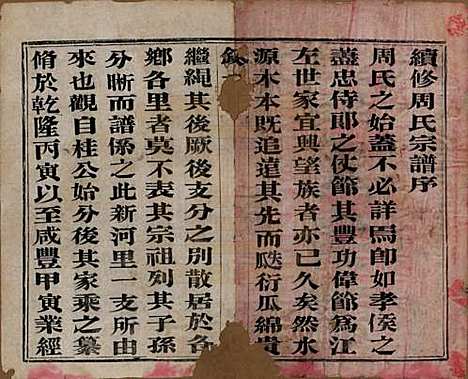 續修周氏宗譜序
周氏之始蓋不必詳焉即如孝侯之
盡忠侍郎之仗節其豐功偉節為江
左世家宜興望族者亦已久矣然水
源木本既追遠其先而瓜瓞衍瓜綿貴
繼繩其後厥後支分之別散居於各
鄉各里者莫不表其宗祖列其子孫
分晰而譜係之此新河里一支所由
來也觀自桂公始分後其家乘之纂
脩於乾隆丙寅以至咸豐甲寅業經